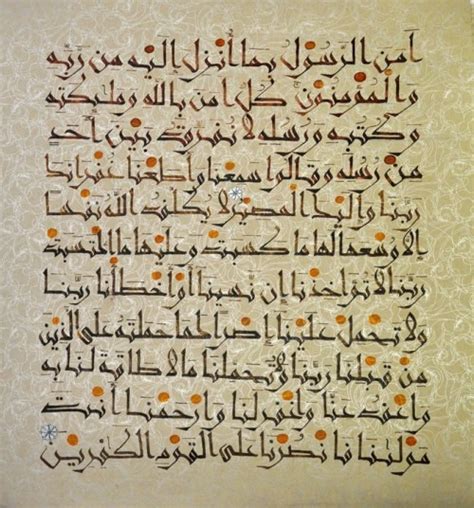 آمن الرسول بما أنزل إليه من ربه
والمؤمنون كل آمن بالله وملئكته
وكتبه ورسله لا نفرق بين أحد
من رسله وقالوا سمعنا وأطعنا غفرانك
ربنا وإليك المصير لا يكلف الله نفسا
إلا وسعها لها ما كسبت وعليها ما اكتسبت
ربنا لا تؤاخذنا إن نسينا أو أخطأنا ربنا
ولا تحمل علينا إصرا كما حملته على الذين
من قبلنا ربنا ولا تحملنا ما لا طاقة لنا به
واعف عنا واغفر لنا وارحمنا أنت
مولىنا فانصرنا على القوم الكفرين